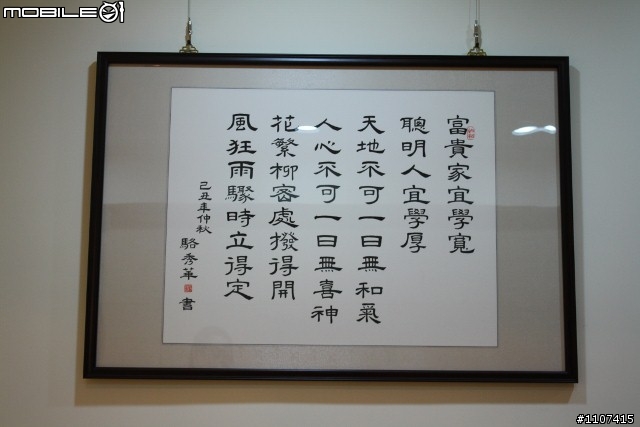 富貴家宜學寬
聰明人宜學厚
天地不可一日無和氣
人心不可一日無喜神
花繁柳密處撥得開
風狂雨驟時立得定
己丑年仲秋
駱秀華書
MOBILE01
#1107415